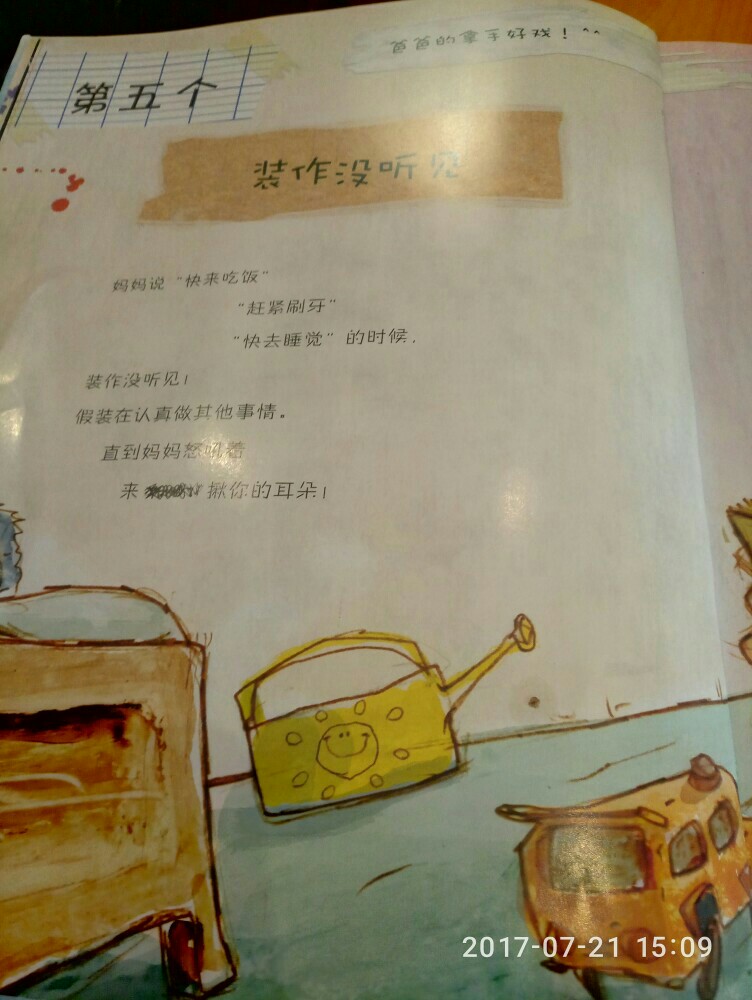 第五个
装作没听见
妈妈说“快来吃饭”
“赶紧刷牙”
“快去睡觉”的时候,
装作没听见!
假装在认真做其他事情。
直到妈妈怒吼着
来 揪你的耳朵!
2017-07-21 15:09